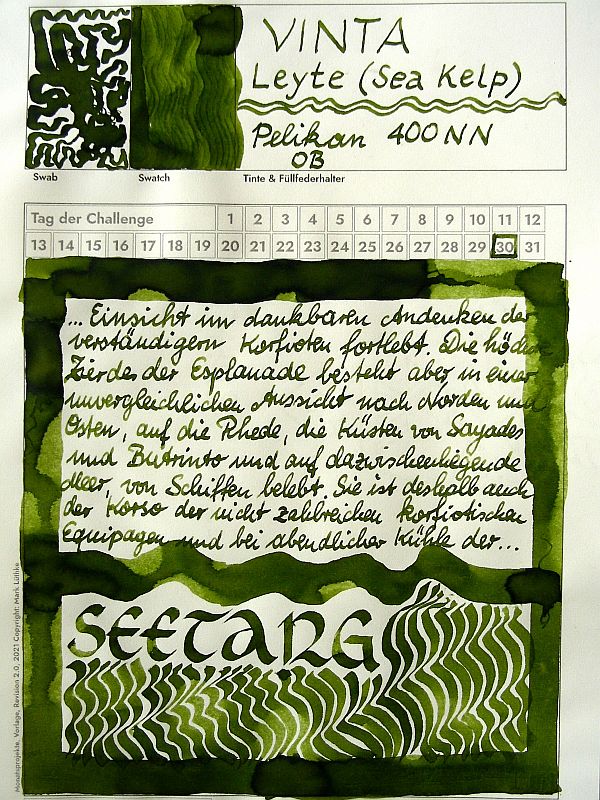 VINTA
Leyte (Sea Kelp)
Pelikan 400NN
OB
Swab Swatch Tinte & Füllfederhalter
Tag der Challenge 1 2 3 4 5 6 7 8 9 10 11 12
13 14 15 16 17 18 19 20 21 22 23 24 25 26 27 28 29 30 31
... Einsicht im dankbaren Andenken der
verständigern Korfioten fortlebt. Die
Zierde der Esplanade besteht aber in einer
unvergleichlichen Aussicht nach Norden und
Osten, auf die Rhede, die Küsten von Sayades
und Butrinto und auf dazwischenliegende
Meer, von Schiffen belebt. Sie ist deshalb auch
der Korso der nicht zahlreichen korfiotischen
Equipagen und bei abendlicher Kühle der...
SEETANG
Monatsprojekte, Vorlage, Revision 2.0, 2021 Copyright: Mark Lüthke